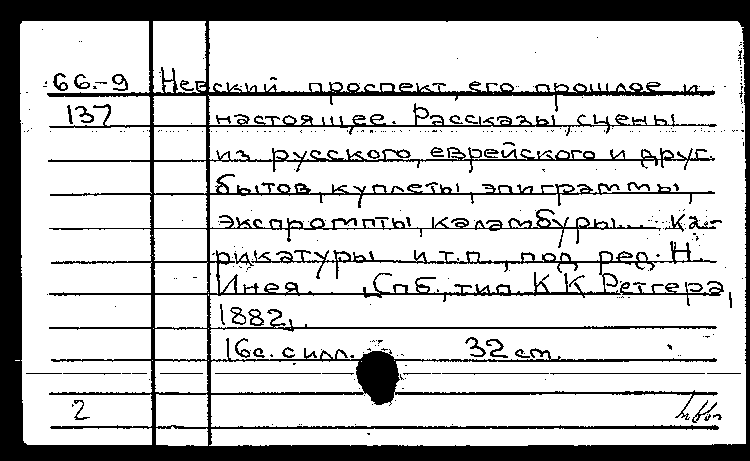 66-9 Невский проспект, его прошлое и
137 настоящее. Рассказы, сцены
из русского, еврейского и друг.
бытов, куплеты, эпиграммы,
экспромпты, каламбуры... ка-
рикатуры и т.п., под ред. Н.
Инея. Спб., тип. К К Ретгера,
1882.
16с. с илл. 32 см.
2